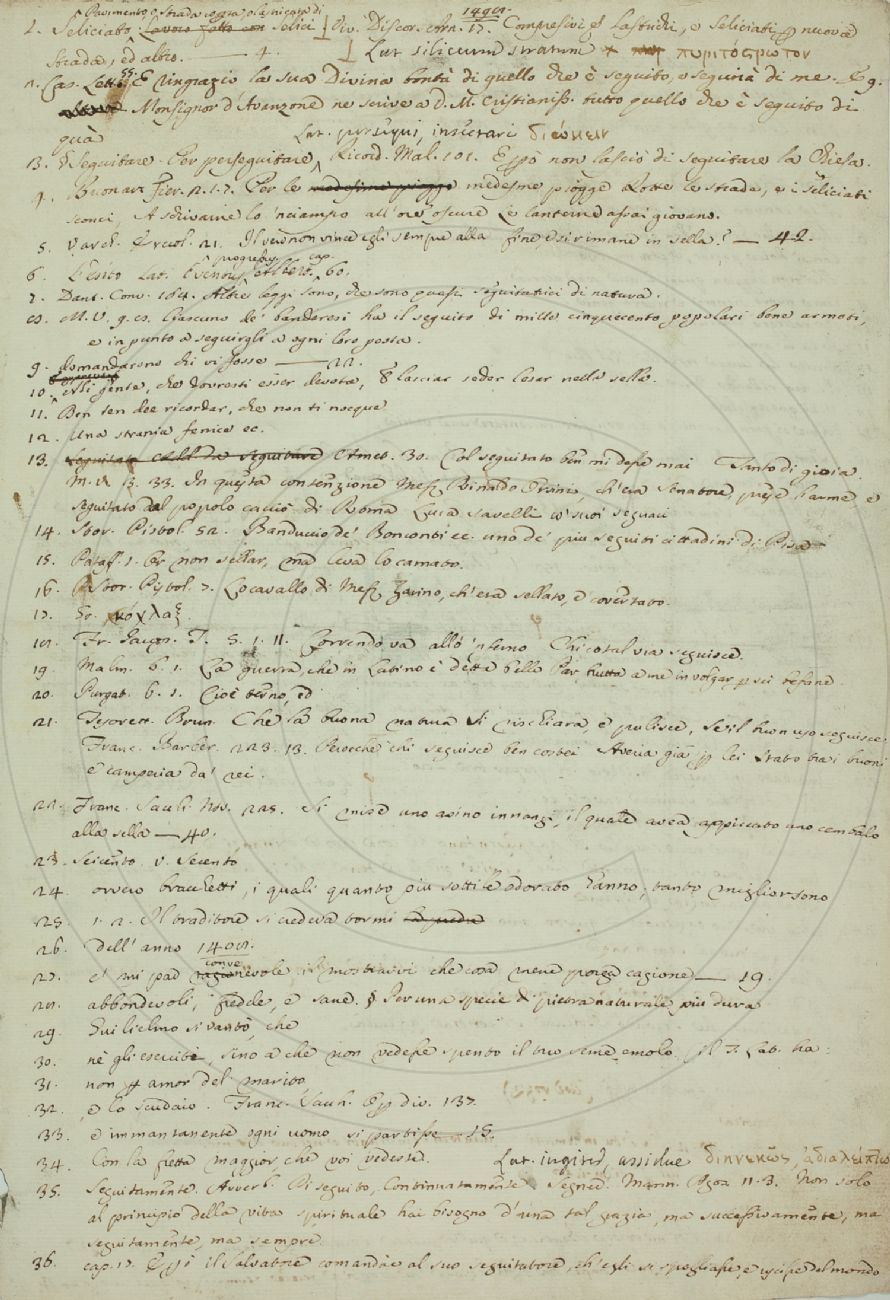 Pavimento, o strada
1. Seliciato. Lavoro fatto con selici Div. Discor. Arn. 17. Compresivi e lastrichi, e seliciati p nuova
strada, ed altro. — 4. Lat. silicum stratum
2. Cas. Lett. 55. E ringrazio la sua Divina bontà di quello che è seguito, e seguirà di me. E 9.
Monsignor d'Avanzone ne scrive a d. M. Cristianiss. tutto quello che è seguito di
quà Lat. insectari διώκειν
3. § Seguitare. Per perseguitare Ricord. Mal. 101. E però non lasciò di seguitare la Chiesa.
4. Buonarr. Fier. 2. 1. 7. Per le medesime piogge Rotte le strade, e i seliciati
sconci, A schivarne lo 'nciampo all'ore oscure Le lanterne assai giovano.
5. Varch. Ercol. 21. Il vero non vince egli sempre alla fine, e si rimane in sella? — 42.
6. Esito Lat. Eventus, progressus. Albert. cap. 60.
7. Dant. Conv. 184. Altre leggi sono, che sono quasi seguitatrici di natura.
8. M. V. 9. Ciascuno de' banderesi ha il seguito di mille cinquecento popolari bene armati,
e in punto a seguirgli a ogni loro posta.
9. domandarono chi vi fosse — 22.
10. Ahi gente, che dovresti esser devota, E lasciar seder Cesar nella sella.
11. Ben ten dee ricordar, che non ti nocque
12. Una strania fenice ec.
13. Amet. 30. Col seguitato ben mi desse mai Tanto di gioia.
M. V. 3. 33. In questa contenzione Mess. Rinaldo Orsini, ch'era senatore prese l'arme e
seguitato dal popolo cacciò di Roma Luca Savelli co' suoi seguaci
14. Stor. Pistol. 52. Banduccio de' Bonconti ec. uno de' più seguiti cittadini di Pisa
15. Pataff. 1. Or non sellar, ma leva lo camato.
16. Stor. Pistol. 7. Lo cavallo di Mess. Zarino, ch'era sellato, e covertato.
17. Gr. κόχλαξ.
18. Fr. Iacop. T. 5. 1. 11. Correndo va allo 'nferno Chi cotal via seguisce.
19. Malm. 6. 1. La guerra, che in Latino è detta bello Par brutta a me in volgar p sei befane
20. Purgat. 6. 1. Cioè terno, ed
21. Tesorett. Brun. Che la buona natura Si rischiara, e pulisce, Se'l buon uso seguisce.
Franc. Barber. 223. 13. Perocchè chi seguisce ben costei Averia già p lei Stato tra i buoni
e camperia da' rei.
22. Franc. Sacch. Nov. 225. Si mise uno asino innanzi, il quale avea appiccato uno cembalo
alla sella — 40.
23. Seicento. v. Secento
24. ovvero bracchetti, i quali quanto più sottile odorato hanno, tanto miglior sono
25. 1. 2. Il traditore si credeva tormi
26. dell'anno
27. e' mi par convenevole il mostrarvi che cosa mene porga cagione — 19.
28. abbondevoli, fredde, e sane. § Per una specie di pietra naturale più dura
29. Guilielmo si vantò, che
30. nè gli eserciti, sino a che non vedesse spento il tuo seme emolo. Il T. Lat. ha:
31. non p amor del marito
32. e lo scudaio. Franc. Sacch. Op div. 137.
33. e immantanente ogni uomo si partisse — 15.
34. Con la fretta maggior, che voi vedeste. Lat. iugiter, assidue διηνεκῶς, ἀδιαλείπτως
35. Seguitamente. Avverb. Di seguito, Continuatamente. Segner. Mann. 11. 3. Non solo
al principio della vita spirituale hai bisogno d'una tal grazia, ma successivamente, ma
seguitamente, ma sempre.
36. cap. 17. E però il Salvatore comandò al suo seguitatore, ch'egli si spogliasse, e uscisse del mondo